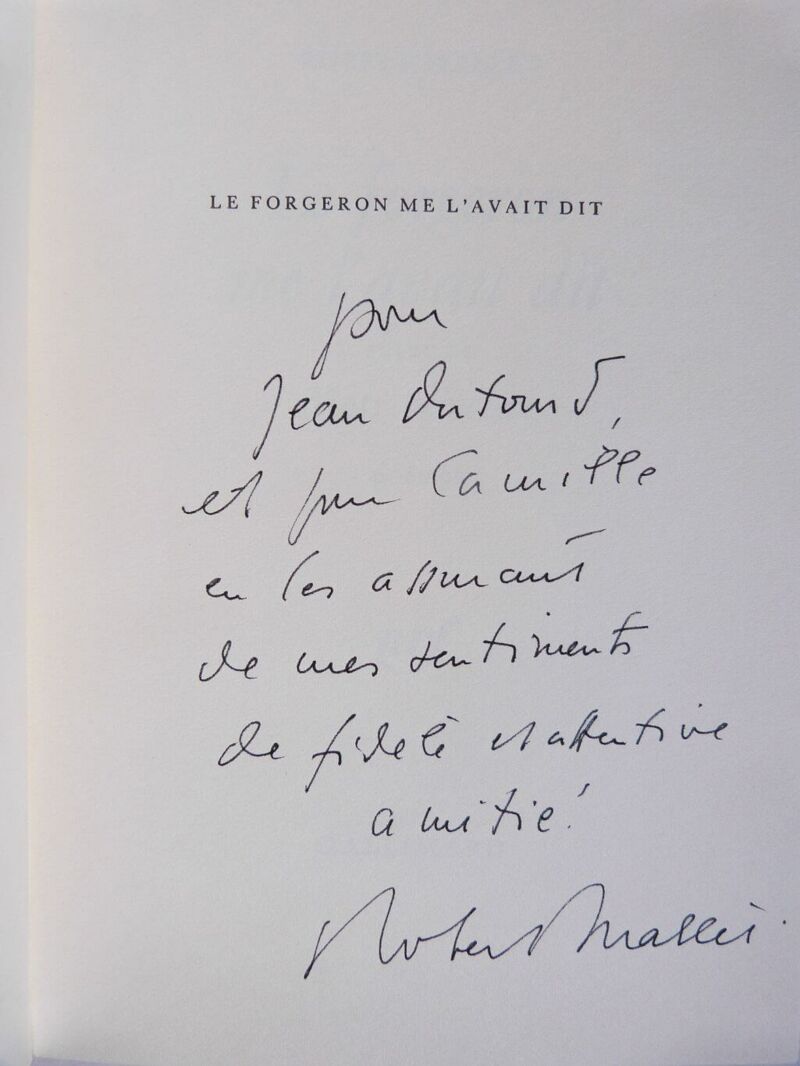 LE FORGERON ME L'AVAIT DIT
pour
Jean Dutourd,
et pour Camille
en les assurant
de mes sentiments
de fidèle et attentive
amitié!
Robert Mallet